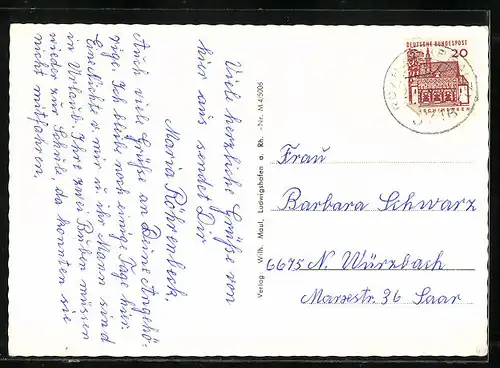 Viele herzliche Grüße von
hier aus sendet Dir
Maria Röhrenbeck.
Auch viele Grüße an Deine Angehö-
rige. Ich bleibe noch einige Tage hier.
Eine Nichte v. mir u. ihr Mann sind
in Urlaub. Ihre zwei Buben müssen
wieder zur Schule, da konnten sie
nicht mitfahren.
Verlag Wilh. Maul, Ludwigshafen a. Rh. -Nr. M 4/5006
DEUTSCHE BUNDESPOST
20
Frau
Barbara Schwarz
6675 N. Würzbach
Marxestr. 36 Saar